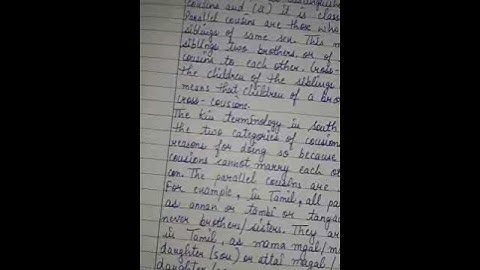 distinguished
cousins and (a) it is class
Parallel cousins are those who
siblings of same sex. This m
siblings two brothers, or of
cousins to each other. Cross-
the children of the siblings
means that children of a bro
cross-cousione.
The kin terminology in south
the two categories of cousions
reasons for doing so because
cousions cannot marry each ot
can. The parallel cousins are
For example, in Tamil, all pa
as annan or tambi or tangac
never brothers/sisters. They ar
in Tamil, as mama magal/ma
daughter (sou) or attai magal /
daughter/son